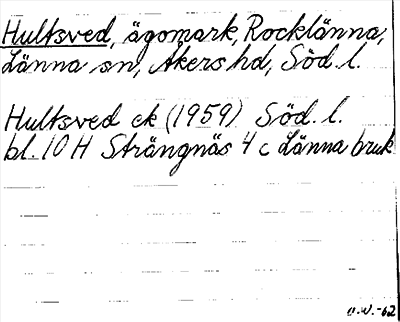 Hultsved, ägomark, Rocklänna,
Länna sn, Åkers hd, Söd. l.
Hultsved ek (1959) Söd. l.
bl. 10 H Strängnäs 4 c Länna bruk
U.W. -62